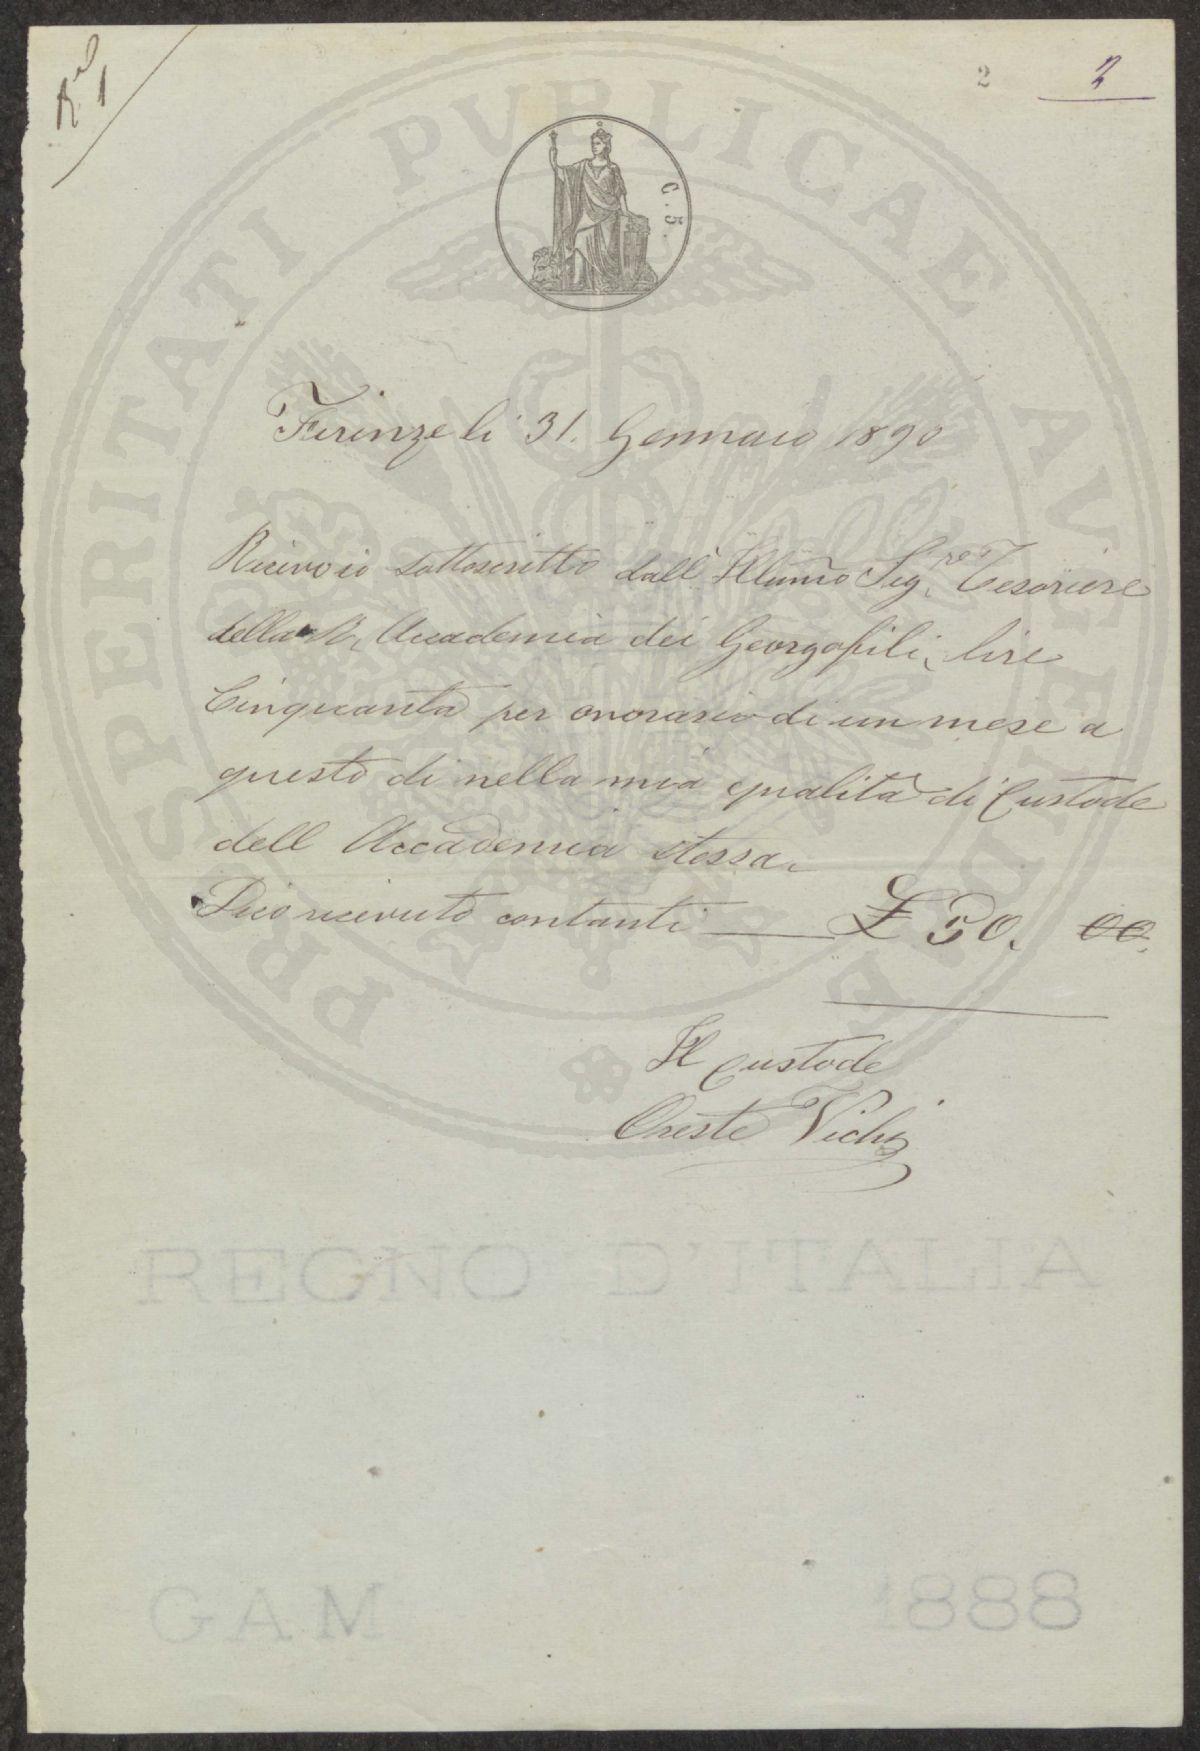 R. 1
2 2
C. 5.
PROSPERITATI PVBLICAE AVGENDAE
Firenze li 31. Gennaio 1890
Ricevo io sottoscritto dall' Illumo Sig.re Tesoriere
della R. Accademia dei Georgofili, lire
Cinquanta per onorario di un mese a
questo di nella mia qualità di Custode
dell Accademia stessa.
Dico ricevuto contanti — £ 50. 00.
Il Custode
Oreste Vichi
REGNO D'ITALIA
GAM 1888